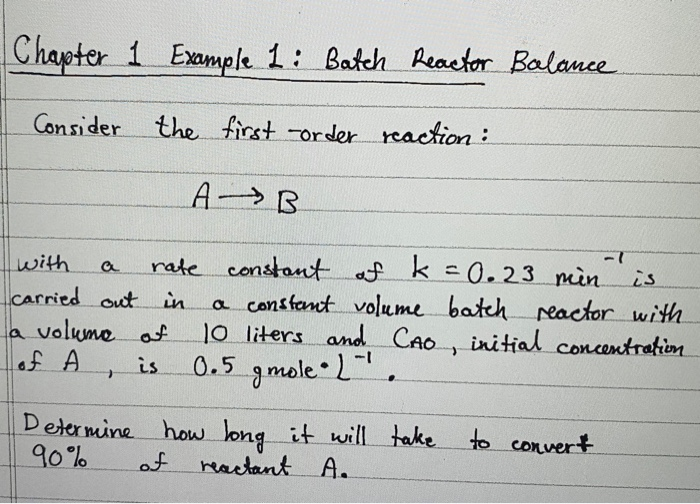 Chapter 1 Example 1: Batch Reactor Balance
Consider the first-order reaction:
A → B
with a rate constant of k = 0.23 min⁻¹ is
carried out in a constant volume batch reactor with
a volume of 10 liters and CAO, initial concentration
of A, is 0.5 gmole•L⁻¹.
Determine how long it will take to convert
90% of reactant A.